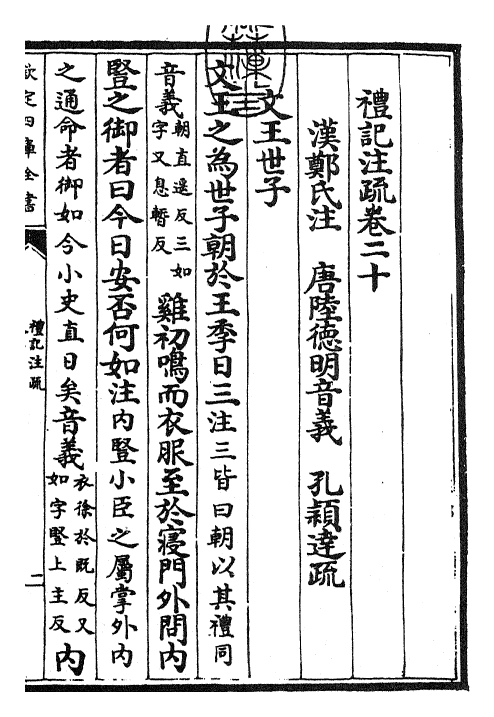 禮記注疏卷二十
漢鄭氏注　唐陸德明音義　孔穎達疏
文王世子
文王之為世子朝於王季日三注三皆曰朝以其禮同
音義朝直遥反三如字又息暫反　雞初鳴而衣服至於寢門外問內
豎之御者曰今日安否何如注內豎小臣之屬掌外內
之通命者御如今小史直日矣音義衣徐於既反又如字豎上主反　內
欽定四庫全書
禮記注疏